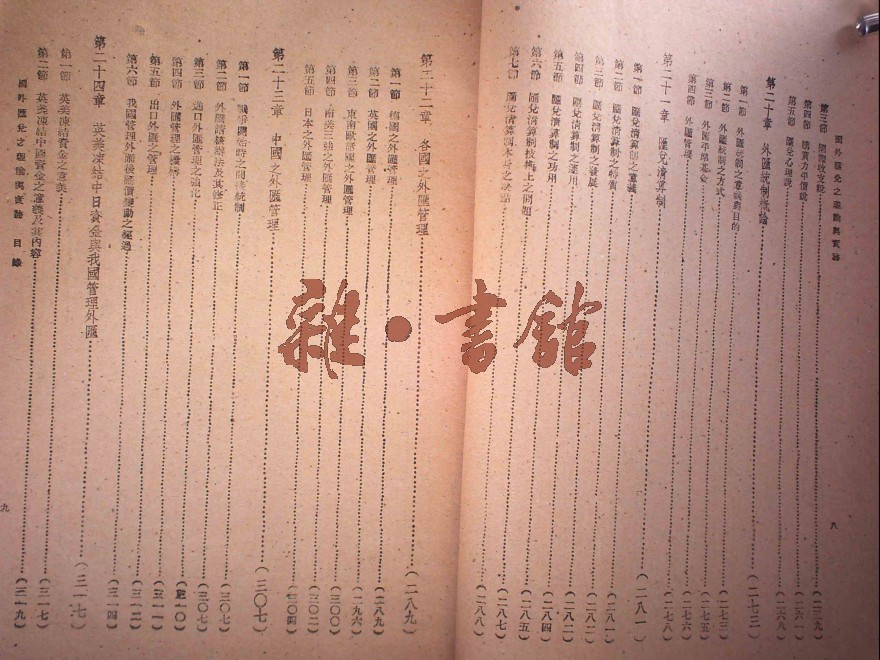 國外匯兌之理論與實務
第三節 國際收支說……(二三九)
第四節 購買力平價說……(二六一)
第五節 匯兌心理說……(二六八)
第二十章 外匯統制概論……(二七三)
第一節 外匯統制之意義與目的……(二七三)
第二節 外匯統制之方式……(二七三)
第三節 外匯平準基金……(二七五)
第四節 外匯管理……(二七六)
第二十一章 匯兌清算制……(二八一)
第一節 匯兌清算制之意義……(二八一)
第二節 匯兌清算制之特質……(二八一)
第三節 匯兌清算制之發展……(二八二)
第四節 匯兌清算制之運用……(二八二)
第五節 匯兌清算制之功用……(二八四)
第六節 匯兌清算制技術上之問題……(二八五)
第七節 匯兌清算制本身之缺點……(二八八)
八
第二十二章 各國之外匯管理……(二八九)
第一節 德國之外匯管理……(二八九)
第二節 英國之外匯管理……(二八九)
第三節 東南歐諸國之外匯管理……(二九六)
第四節 南美三強之外匯管理……(三〇〇)
第五節 日本之外匯管理……(三〇二)
第二十三章 中國之外匯管理……(三〇七)
第一節 戰爭開始時之間接統制
第二節 外匯請核辦法及其修正……(三〇七)
第三節 進口外匯管理之強化……(三〇七)
第四節 外匯管理之
第五節 出口外匯之管理……(三一一)
第六節 我國管理外匯後匯價變動之經過……(三一二)
第二十四章 英美凍結中日資金與我國管理外匯……(三一七)
第一節 英美凍結資金之意義……(三一七)
第二節 英美凍結中國資金之意義及其內容……(三一九)
國外匯兌之理論與實務 目錄
九
雜·書館